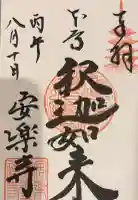 奉拝
本尊
釈迦如来
丙午
八月十日
安楽寺